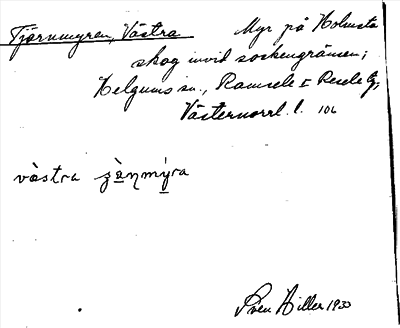 Tjärnmyren, Västra Myr på Holmsta
skog invid sockengränsen;
Helgums sn., Ramsele o Resele tg,
Västernorrl. l. 10L
västra
Sven Hiller 1930